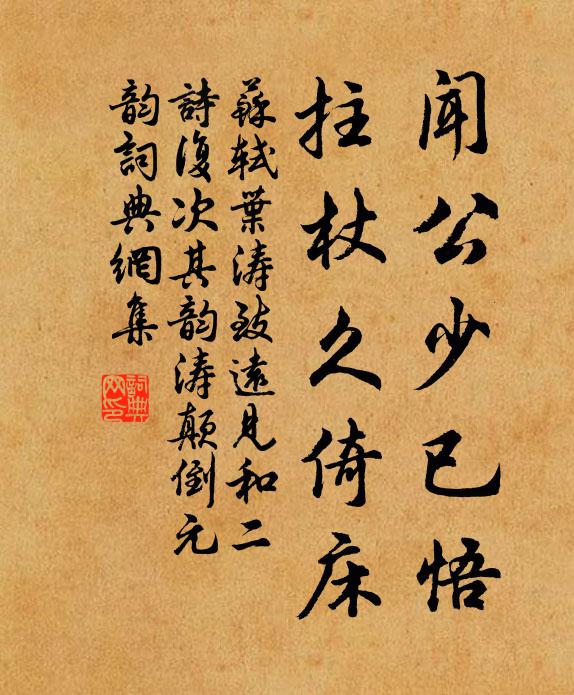 聞公少已悟
拄杖久倚床
蘇軾葉濤致遠見和二
詩復次其韵濤顛倒元
韵詞典網集
詞典
网印